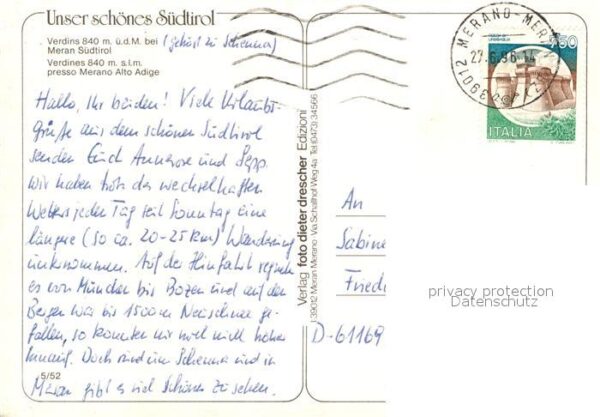 Unser schönes Südtirol
Verdins 840 m. ü.d.M. bei (gehört zu Schenna)
Meran Südtirol
Verdines 840 m. s.l.m.
presso Merano Alto Adige
Hallo, Ihr beiden! Viele Urlaubs-
grüße aus dem schönen Südtirol
senden Euch Annerose und Sepp.
Wir haben trotz des wechselhaften
Wetters jeden Tag seit Sonntag eine
längere (so ca. 20-25 km) Wanderung
unternommen. Auf der Hinfahrt regnete
es von München bis Bozen und auf den
Bergen war bis 1500m Neuschnee ge-
fallen, so konnten wir noch nicht höher
hinauf. Doch rund um Schenna und in
Meran gibt es viel Schönes zu sehen.
5/52
Verlag foto dieter drescher Edizioni
I 39012 Meran Merano · Via Schallhof Weg 4a Tel (0473) 34566
39012 MERANO - MERAN
27.6.96-14
450
ITALIA
An
Sabine
Friede
D-61169
privacy protection
Datenschutz